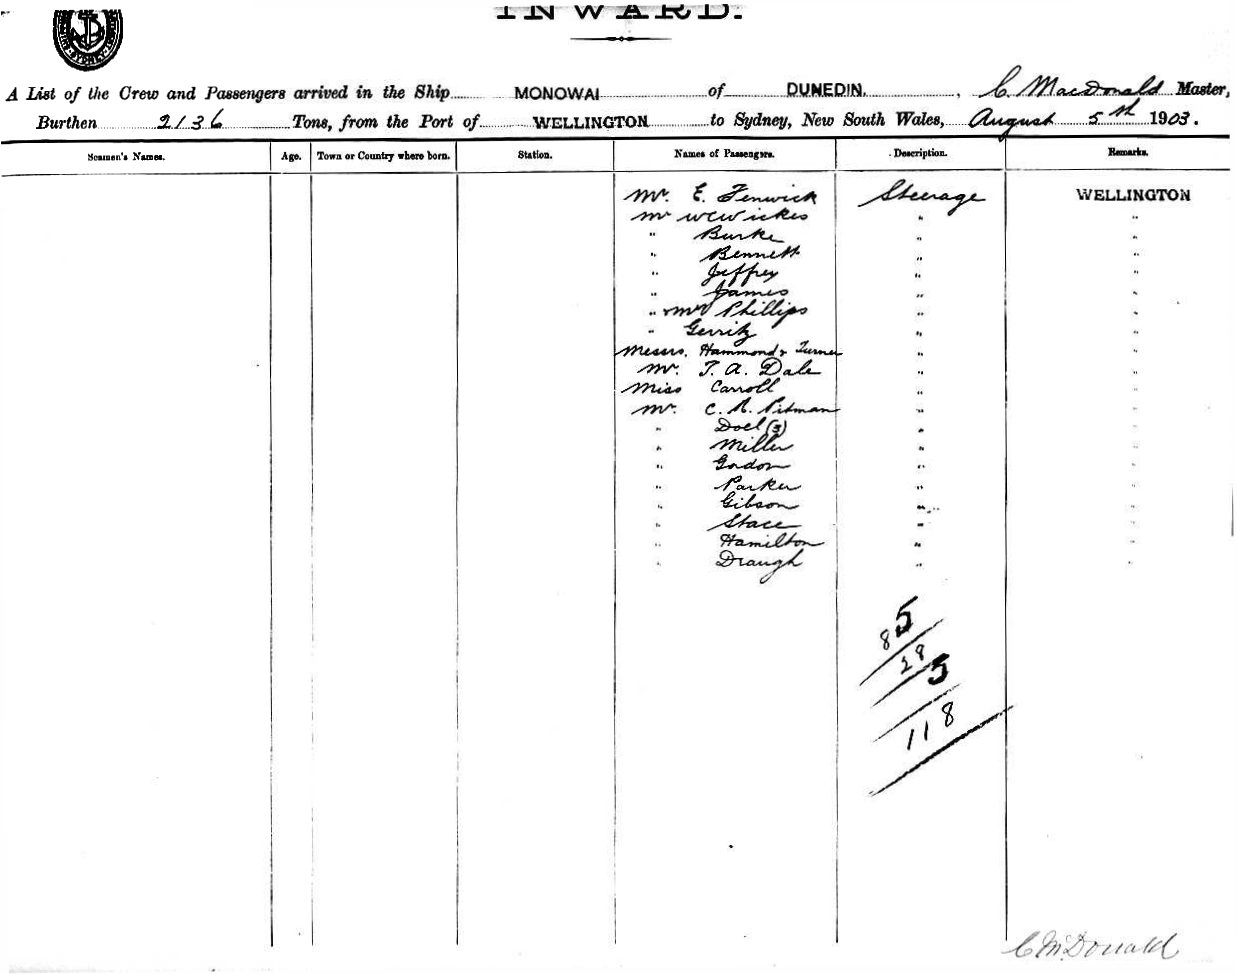 INWARD.
SYDNEY
A List of the Crew and Passengers arrived in the Ship MONOWAI of DUNEDIN, C. MacDonald Master,
Burthen 2136 Tons, from the Port of WELLINGTON to Sydney, New South Wales, August 5th 1903.
Seamen's Names. Age. Town or Country where born. Station. Names of Passengers. Description. Remarks.
Mr. E. Fenwick Steerage WELLINGTON
Mr W C Wickes " "
" Burke " "
" Bennett " "
" Jeffrey " "
" James " "
" & Mrs Phillips " "
" Gerritz " "
Messrs. Hammond & Turner " "
Mr. T. A. Dale " "
Miss Carroll " "
Mr. C. A. Pitman " "
" Doel (3) " "
" Miller " "
" Gordon " "
" Parker " "
" Gibson " "
" Stace " "
" Hamilton " "
" Draugh " "
85
28
5
118
C McDonald